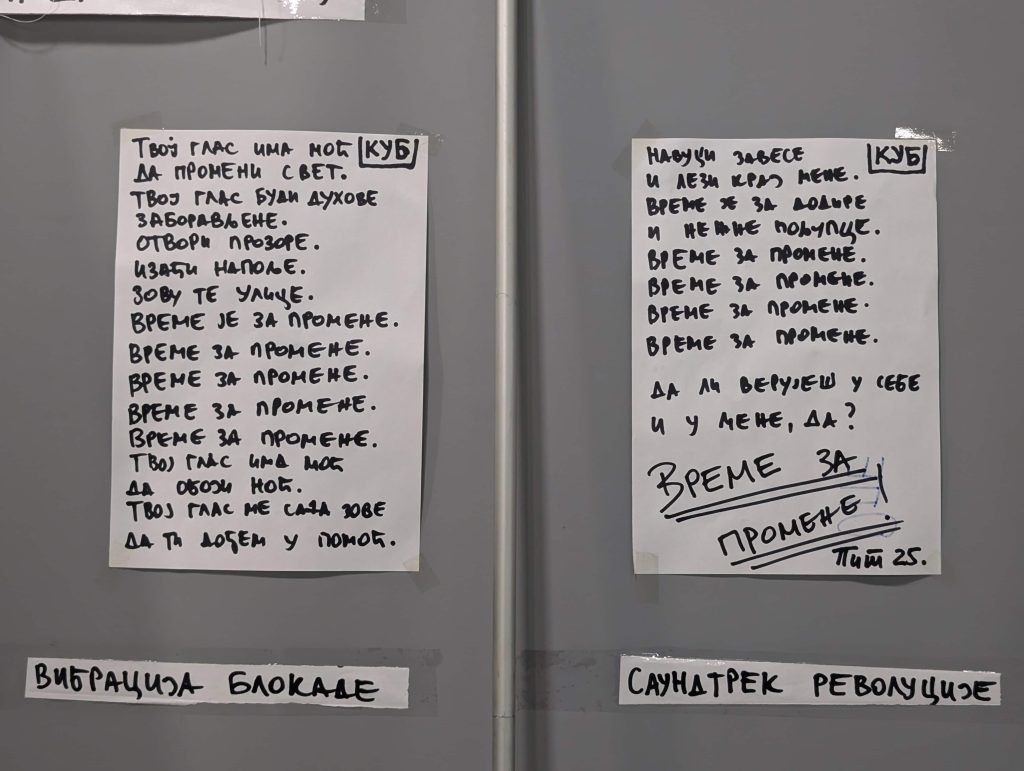 ТВОЈ ГЛАС ИМА МОЋ КУБ
ДА ПРОМЕНИ СВЕТ.
ТВОЈ ГЛАС БУДИ ДУХОВЕ
ЗАБОРАВЉЕНЕ.
ОТВОРИ ПРОЗОРЕ.
ИЗАЂИ НАПОЉЕ.
ЗОВУ ТЕ УЛИЦЕ.
ВРЕМЕ ЈЕ ЗА ПРОМЕНЕ.
ВРЕМЕ ЗА ПРОМЕНЕ.
ВРЕМЕ ЗА ПРОМЕНЕ.
ВРЕМЕ ЗА ПРОМЕНЕ.
ВРЕМЕ ЗА ПРОМЕНЕ.
ТВОЈ ГЛАС ИМА МОЋ
ДА ОБОЈИ НОЋ.
ТВОЈ ГЛАС МЕ САДА ЗОВЕ
ДА ТИ ДОЂЕМ У ПОМОЋ.
ВИБРАЦИЈА БЛОКАДЕ
НАВУЦИ ЗАВЕСЕ КУБ
И ЛЕЗИ КРАЈ МЕНЕ.
ВРЕМЕ ЈЕ ЗА ДОДИРЕ
И НЕЖНЕ ПОЉУПЦЕ.
ВРЕМЕ ЗА ПРОМЕНЕ.
ВРЕМЕ ЗА ПРОМЕНЕ.
ВРЕМЕ ЗА ПРОМЕНЕ.
ВРЕМЕ ЗА ПРОМЕНЕ.
ДА ЛИ ВЕРУЈЕШ У СЕБЕ
И У МЕНЕ, ДА?
ВРЕМЕ ЗА
ПРОМЕНЕ!
Пит 25.
САУНДТРЕК РЕВОЛУЦИЈЕ